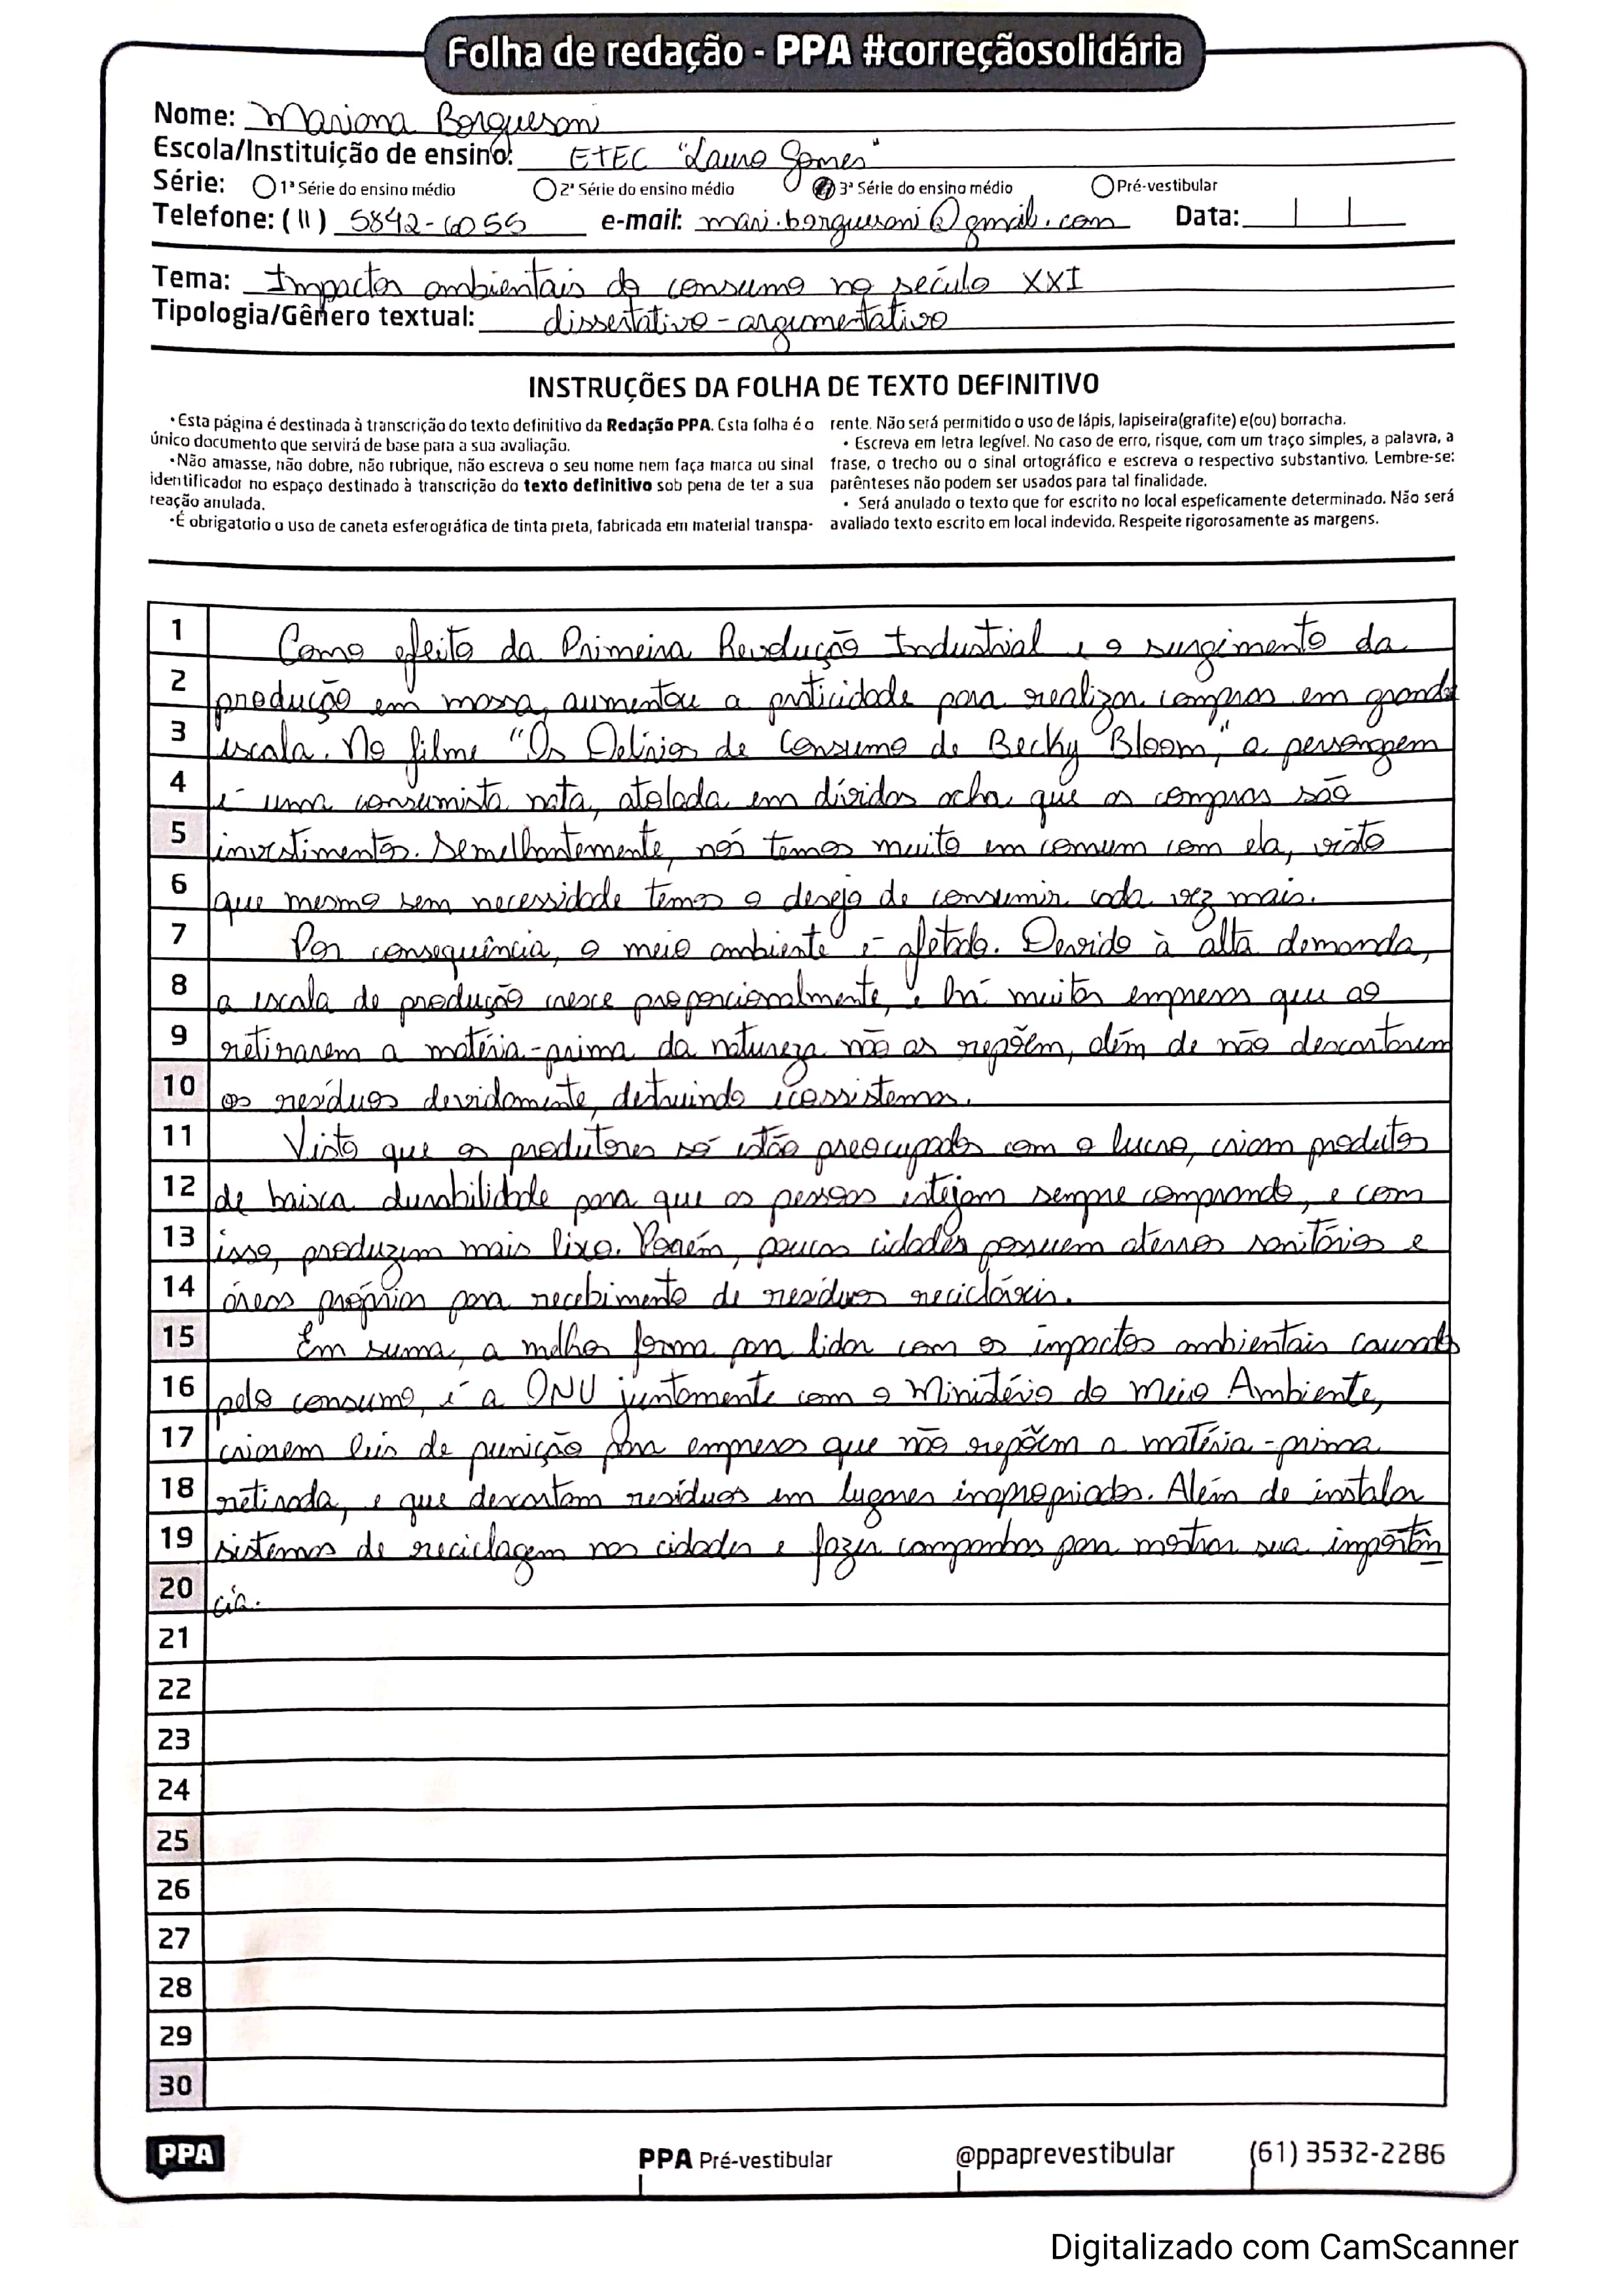 Folha de redação - PPA #correçãosolidária
Nome: Mariana Borguesoni
Escola/Instituição de ensino: ETEC "Lauro Gomes"
Série: 1ª Série do ensino médio 2ª Série do ensino médio 3ª Série do ensino médio Pré-vestibular
Telefone: (11) 5842-6055 e-mail: mari.borguesoni@gmail.com Data:
Tema: Impactos ambientais do consumo no século XXI
Tipologia/Gênero textual: dissertativo-argumentativo
INSTRUÇÕES DA FOLHA DE TEXTO DEFINITIVO
•Esta página é destinada à transcrição do texto definitivo da Redação PPA. Esta folha é o
único documento que servirá de base para a sua avaliação.
•Não amasse, não dobre, não rubrique, não escreva o seu nome nem faça marca ou sinal
identificador no espaço destinado à transcrição do texto definitivo sob pena de ter a sua
reação anulada.
•É obrigatorio o uso de caneta esferográfica de tinta preta, fabricada em material transpa-
rente. Não será permitido o uso de lápis, lapiseira(grafite) e(ou) borracha.
• Escreva em letra legível. No caso de erro, risque, com um traço simples, a palavra, a
frase, o trecho ou o sinal ortográfico e escreva o respectivo substantivo. Lembre-se:
parênteses não podem ser usados para tal finalidade.
• Será anulado o texto que for escrito no local espeficamente determinado. Não será
avaliado texto escrito em local indevido. Respeite rigorosamente as margens.
1 Como efeito da Primeira Revolução Industrial e o surgimento da
2 produção em massa, aumentou a praticidade para realizar compras em grande
3 escala. No filme "Os Delírios de Consumo de Becky Bloom", a personagem
4 é uma consumista nata, atolada em dívidas acha que as compras são
5 investimentos. Semelhantemente, nós temos muito em comum com ela, visto
6 que mesmo sem necessidade temos o desejo de consumir cada vez mais.
7 Por consequência, o meio ambiente é afetado. Devido à alta demanda,
8 a escala de produção cresce proporcionalmente, e há muitas empresas que ao
9 retirarem a matéria-prima da natureza não as repõem, além de não descartarem
10 os resíduos devidamente, destruindo ecossistemas.
11 Visto que os produtores só estão preocupados com o lucro, criam produtos
12 de baixa durabilidade para que as pessoas estejam sempre comprando, e com
13 isso, produzem mais lixo. Porém, poucas cidades possuem aterros sanitários e
14 áreas próprias para recebimento de resíduos recicláveis.
15 Em suma, a melhor forma para lidar com os impactos ambientais causados
16 pelo consumo, é a ONU juntamente com o Ministério do Meio Ambiente,
17 criarem leis de punição para empresas que não repõem a matéria-prima
18 retirada, e que descartam resíduos em lugares inapropriados. Além de instalar
19 sistemas de reciclagem nas cidades e fazer campanhas para mostrar sua importân
20 cia.
21
22
23
24
25
26
27
28
29
30
PPA PPA Pré-vestibular @ppaprevestibular (61) 3532-2286
Digitalizado com CamScanner